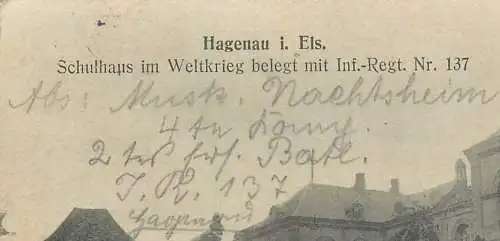 Hagenau i. Els.
Schulhaus im Weltkrieg belegt mit Inf.-Regt. Nr. 137
Abs: Musk. Nachtsheim
4te Komp.
2tes Ers. Batl.
I. R. 137
Hagenau